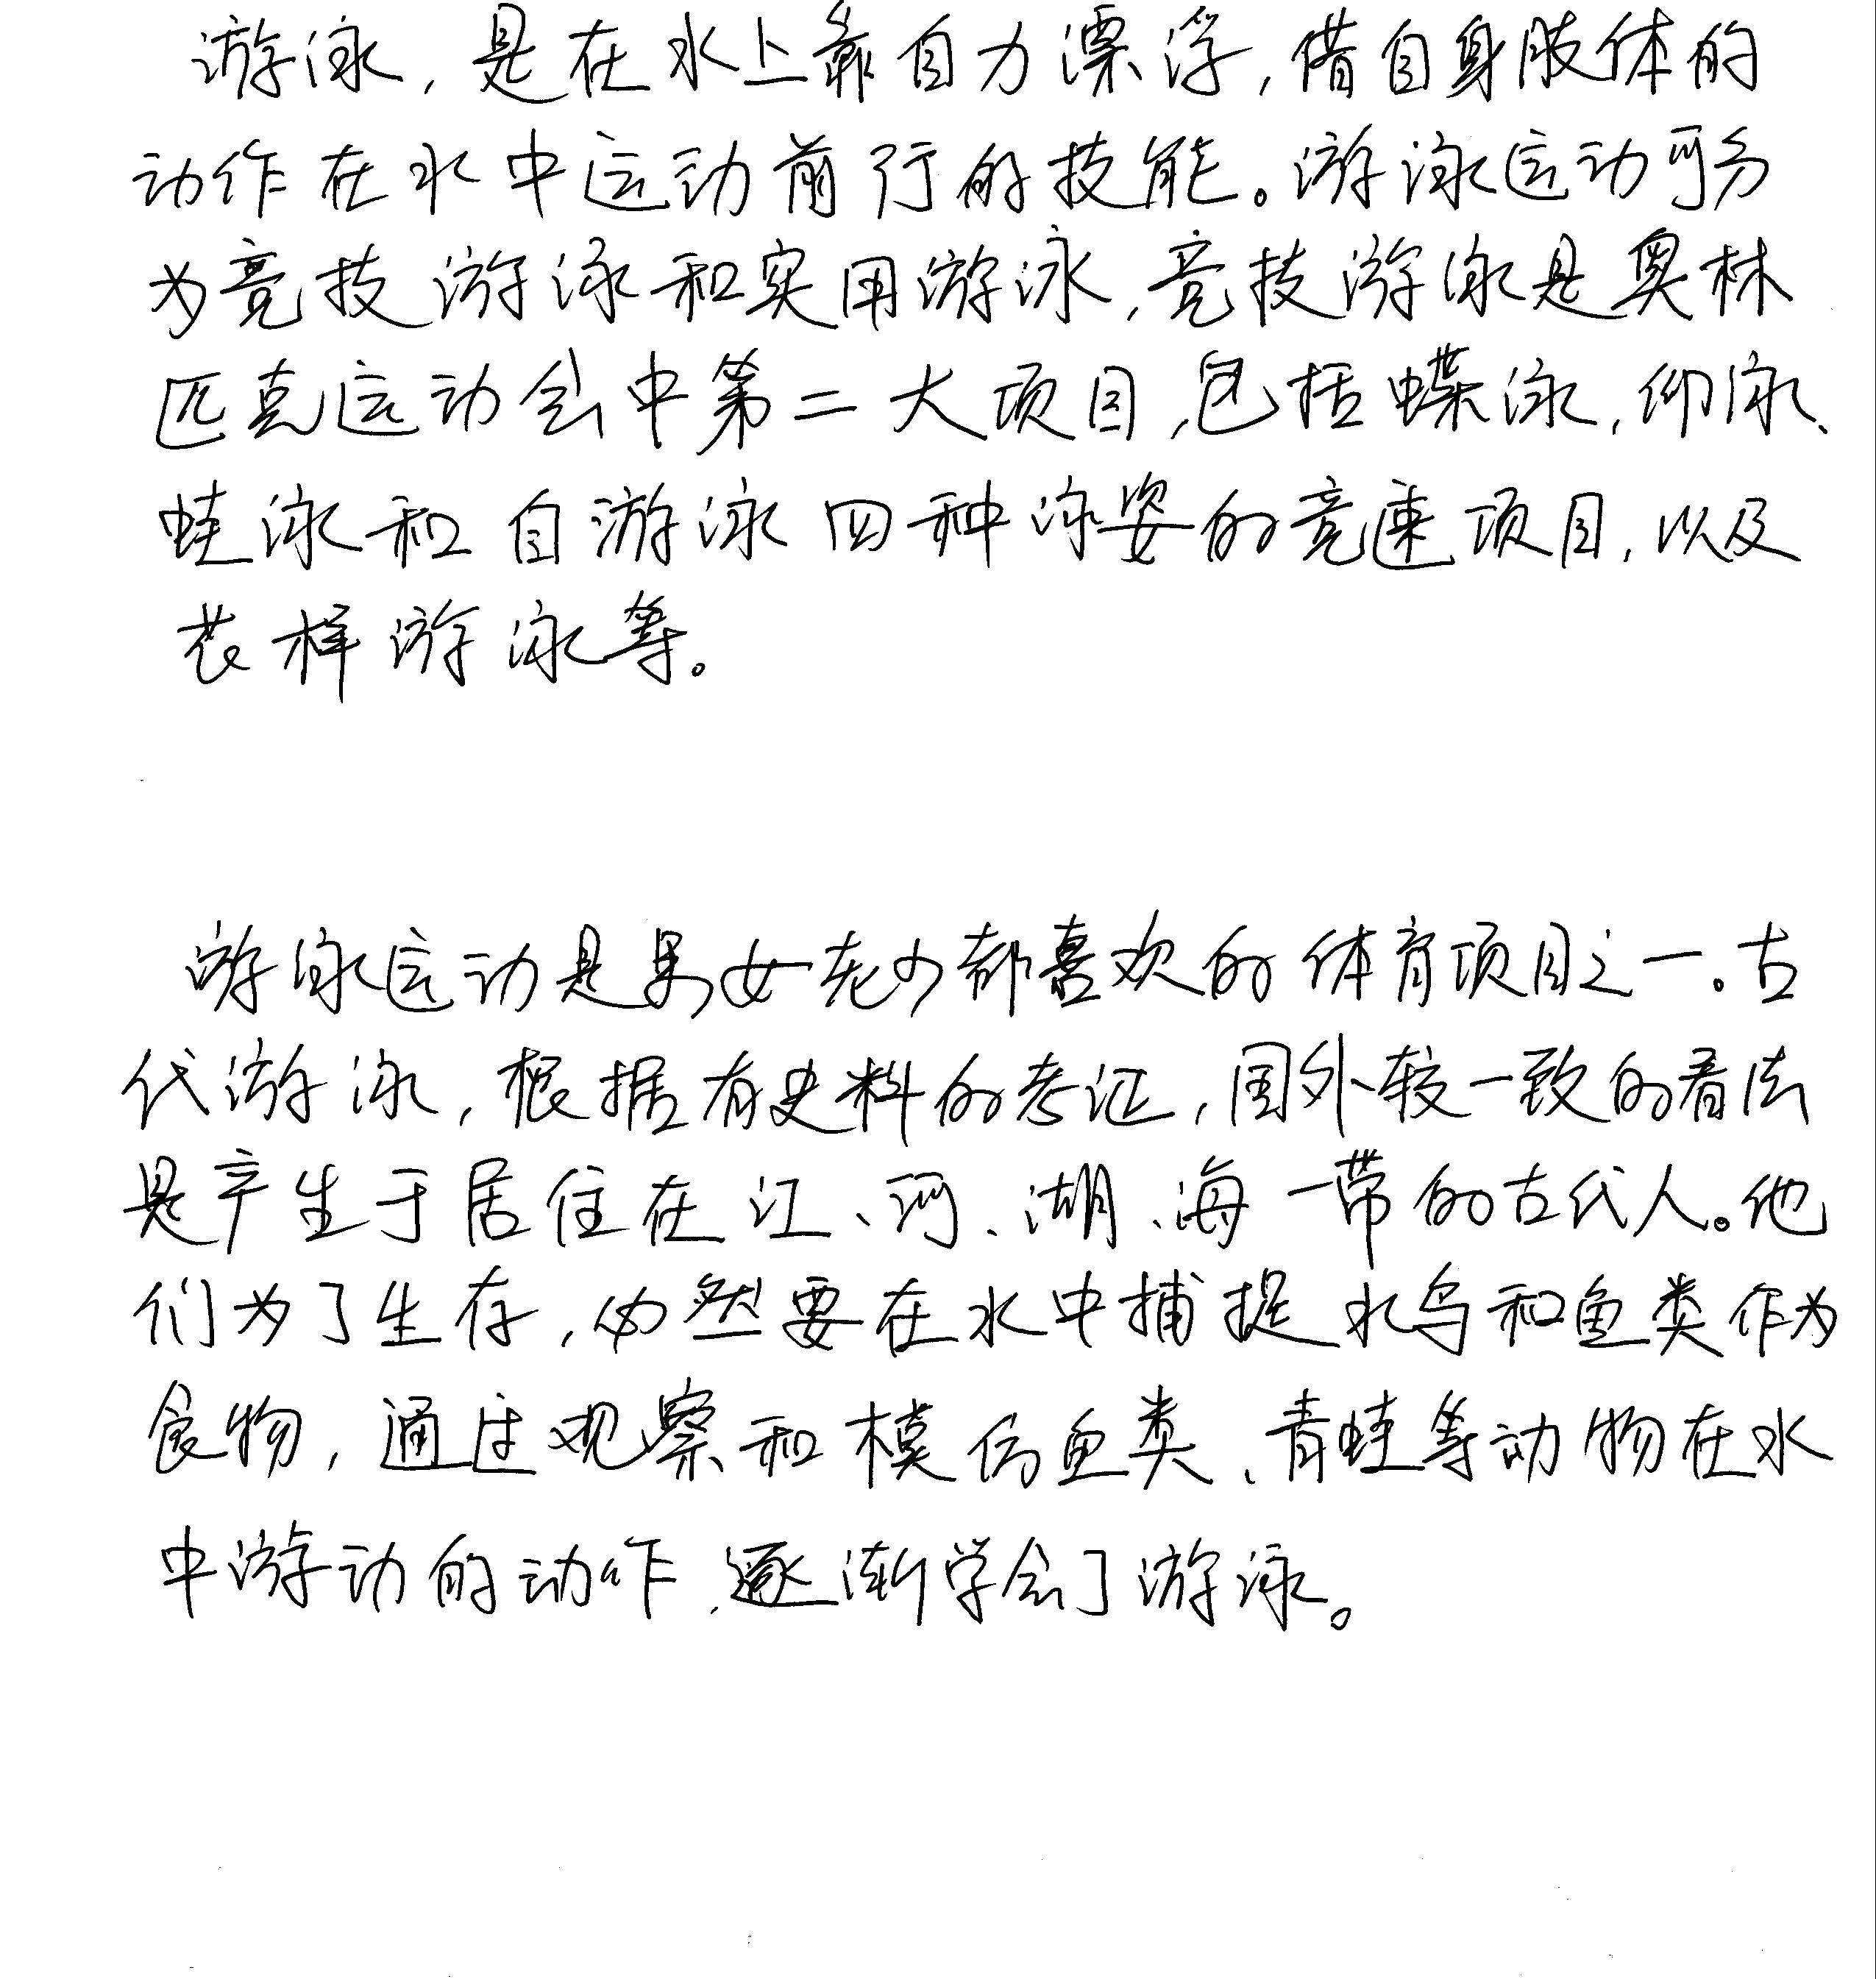 游泳，是在水上靠自力漂浮，借自身肢体的
动作在水中运动前行的技能。游泳运动可分
为竞技游泳和实用游泳，竞技游泳是奥林
匹克运动会中第二大项目，包括蝶泳，仰泳、
蛙泳和自游泳四种泳姿的竞速项目，以及
花样游泳等。
游泳运动是男女老少都喜欢的体育项目之一。古
代游泳，根据有史料的考证，国外较一致的看法
是产生于居住在江、河、湖、海一带的古代人。他
们为了生存，必然要在水中捕捉水鸟和鱼类作为
食物，通过观察和模仿鱼类、青蛙等动物在水
中游动的动作，逐渐学会了游泳。